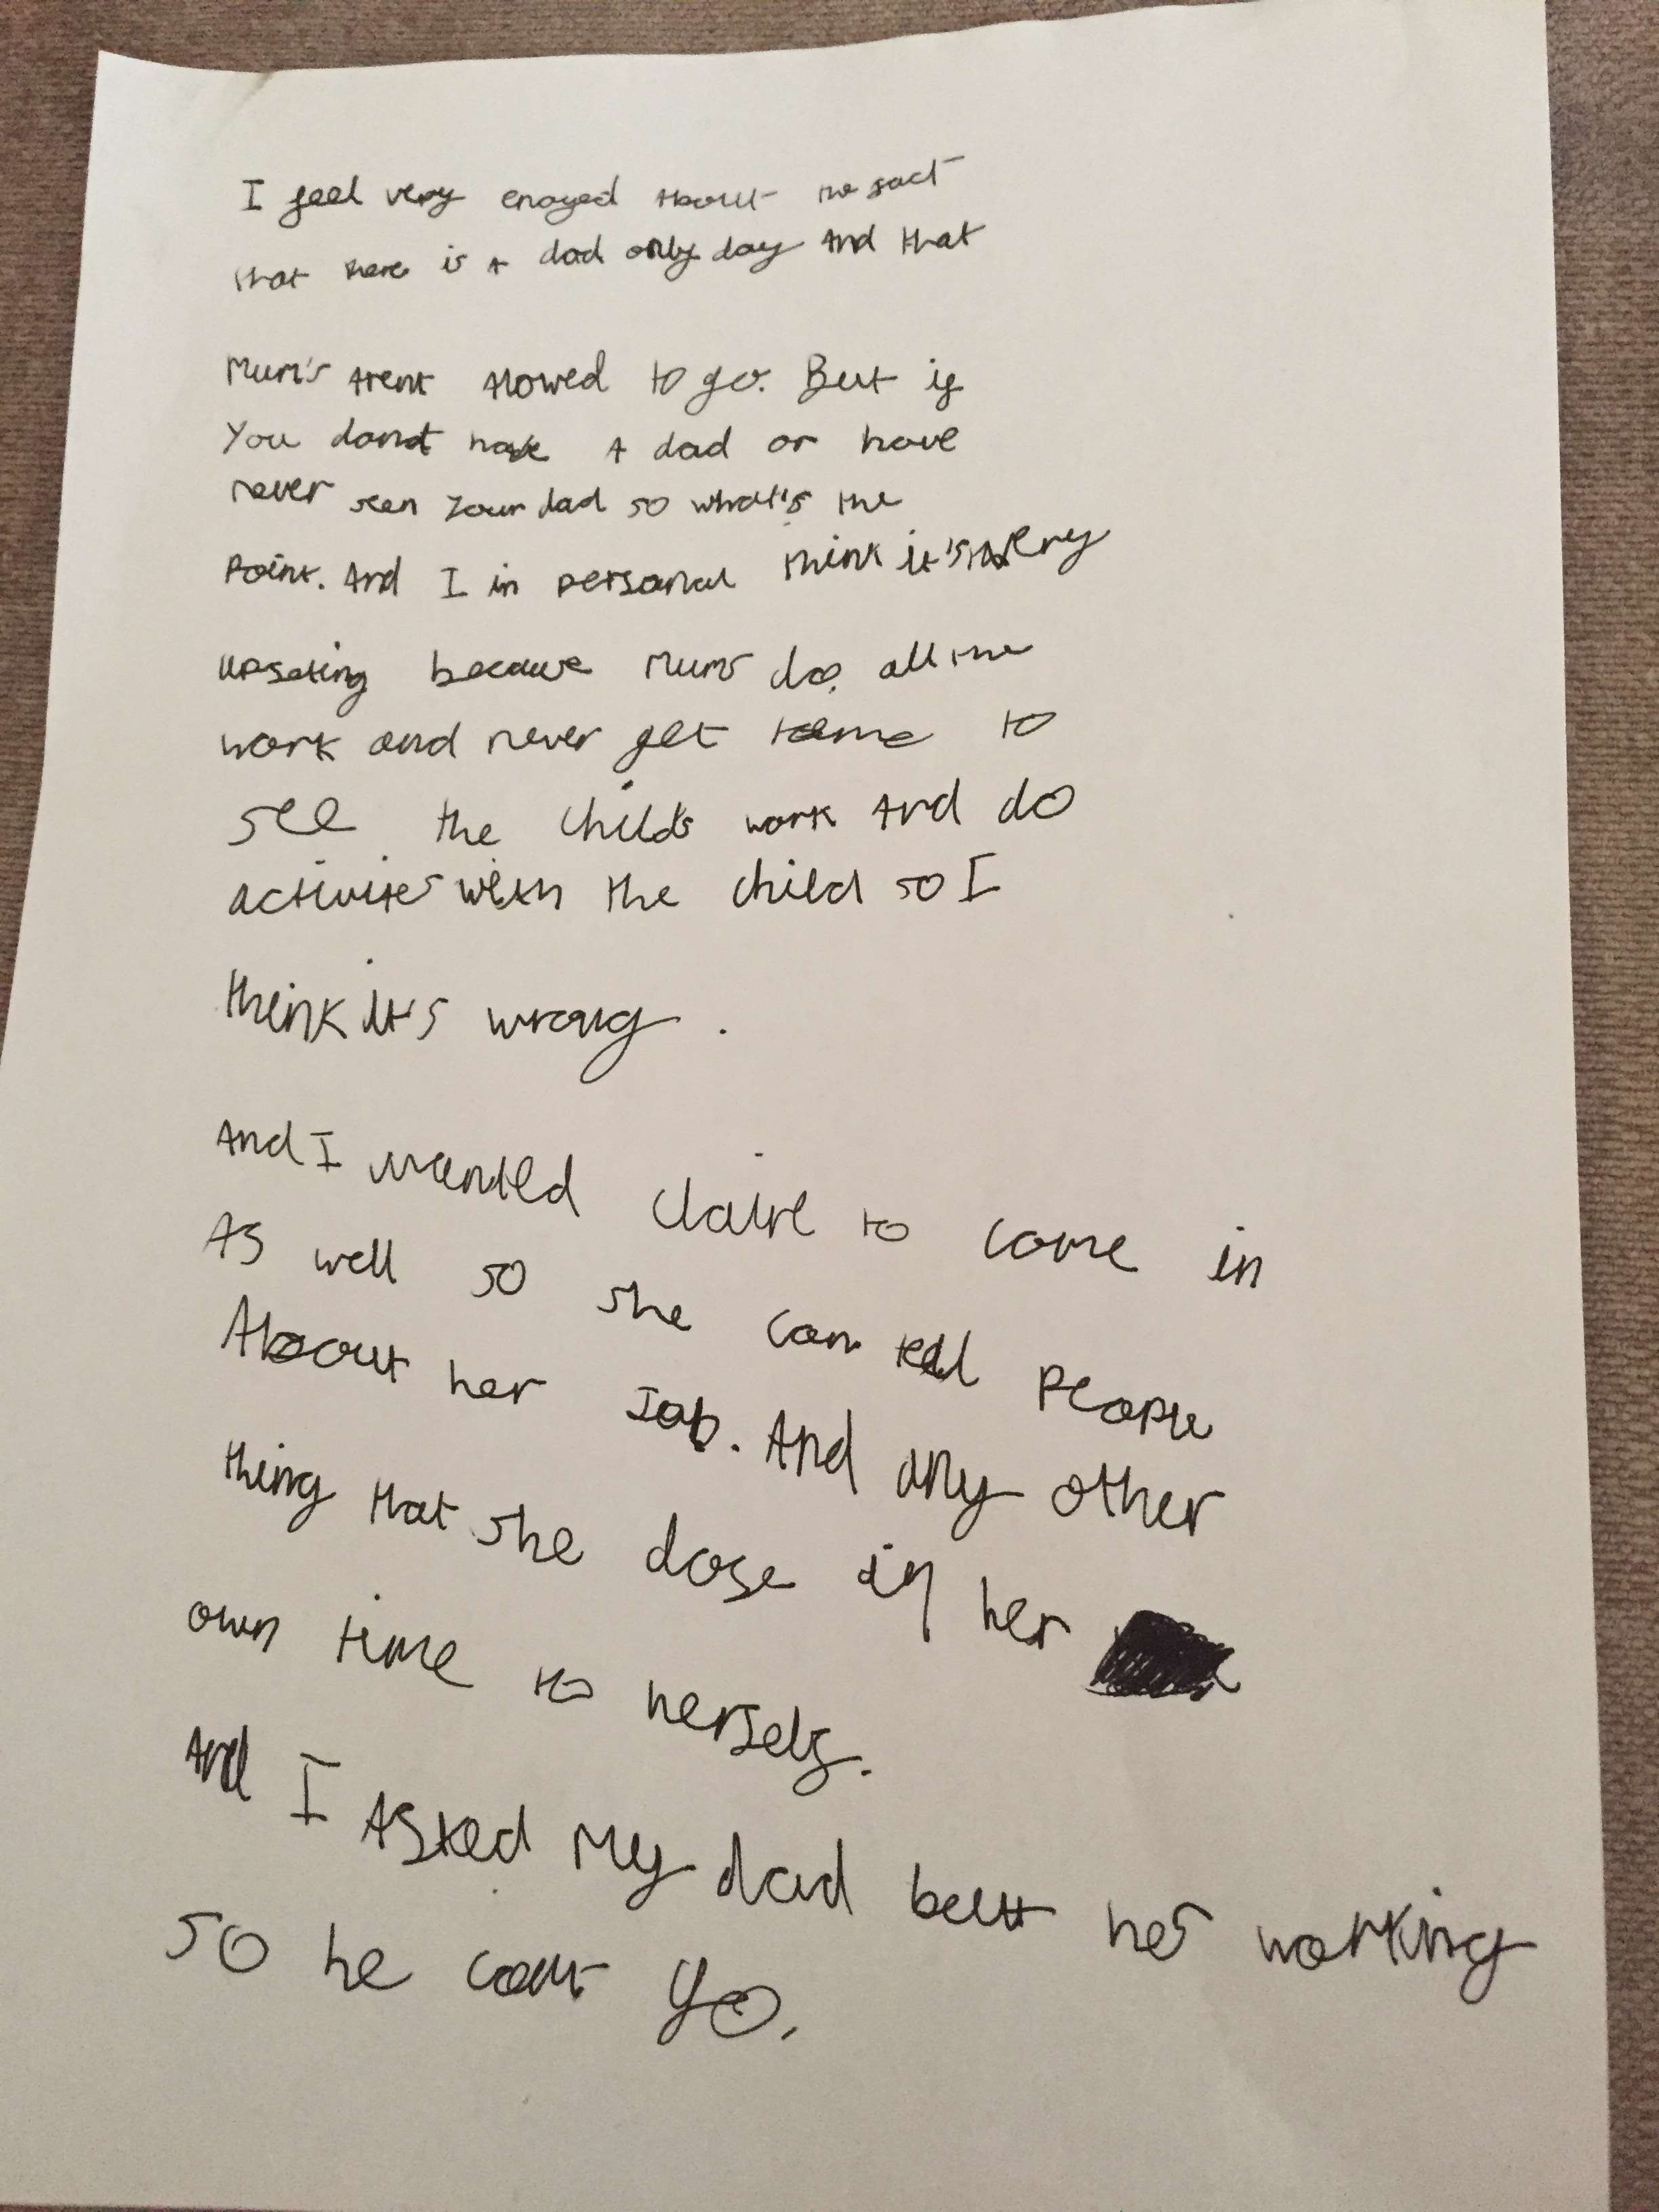 I feel very enoyed about the fact
that there is A dad only day And that
Mum's Arent Alowed to go. But if
You don't have A dad or have
never seen your dad so what's the
Point. And I in personal think it's very
upseting because Mums do all the
work and never get time to
see the child's work And do
activites with the child so I
think it's wrong.
And I wanted Claire to come in
As well so she can tell people
About her Job. And any other
thing that she dose in her
own time to herself.
And I Asked My dad but hes working
so he cant go.